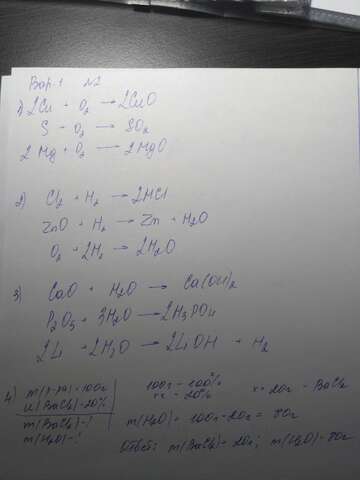 Вар. 1 №1
1) 2Cu + O₂ → 2CuO
S + O₂ → SO₂
2 Mg + O₂ → 2 MgO
2) Cl₂ + H₂ → 2HCl
ZnO + H₂ → Zn + H₂O
O₂ + 2H₂ → 2H₂O
3) CaO + H₂O → Ca(OH)₂
P₂O₅ + 3H₂O → 2H₃PO₄
2Li + 2H₂O → 2LiOH + H₂
4) m(р-ра) = 100г 100г - 100% x = 20г - BaCl₂
W(BaCl₂) = 20% x г - 20%
m(BaCl₂) - ? m(H₂O) = 100г - 20г = 80г
m(H₂O) - ? Ответ: m(BaCl₂) = 20г; m(H₂O) = 80г